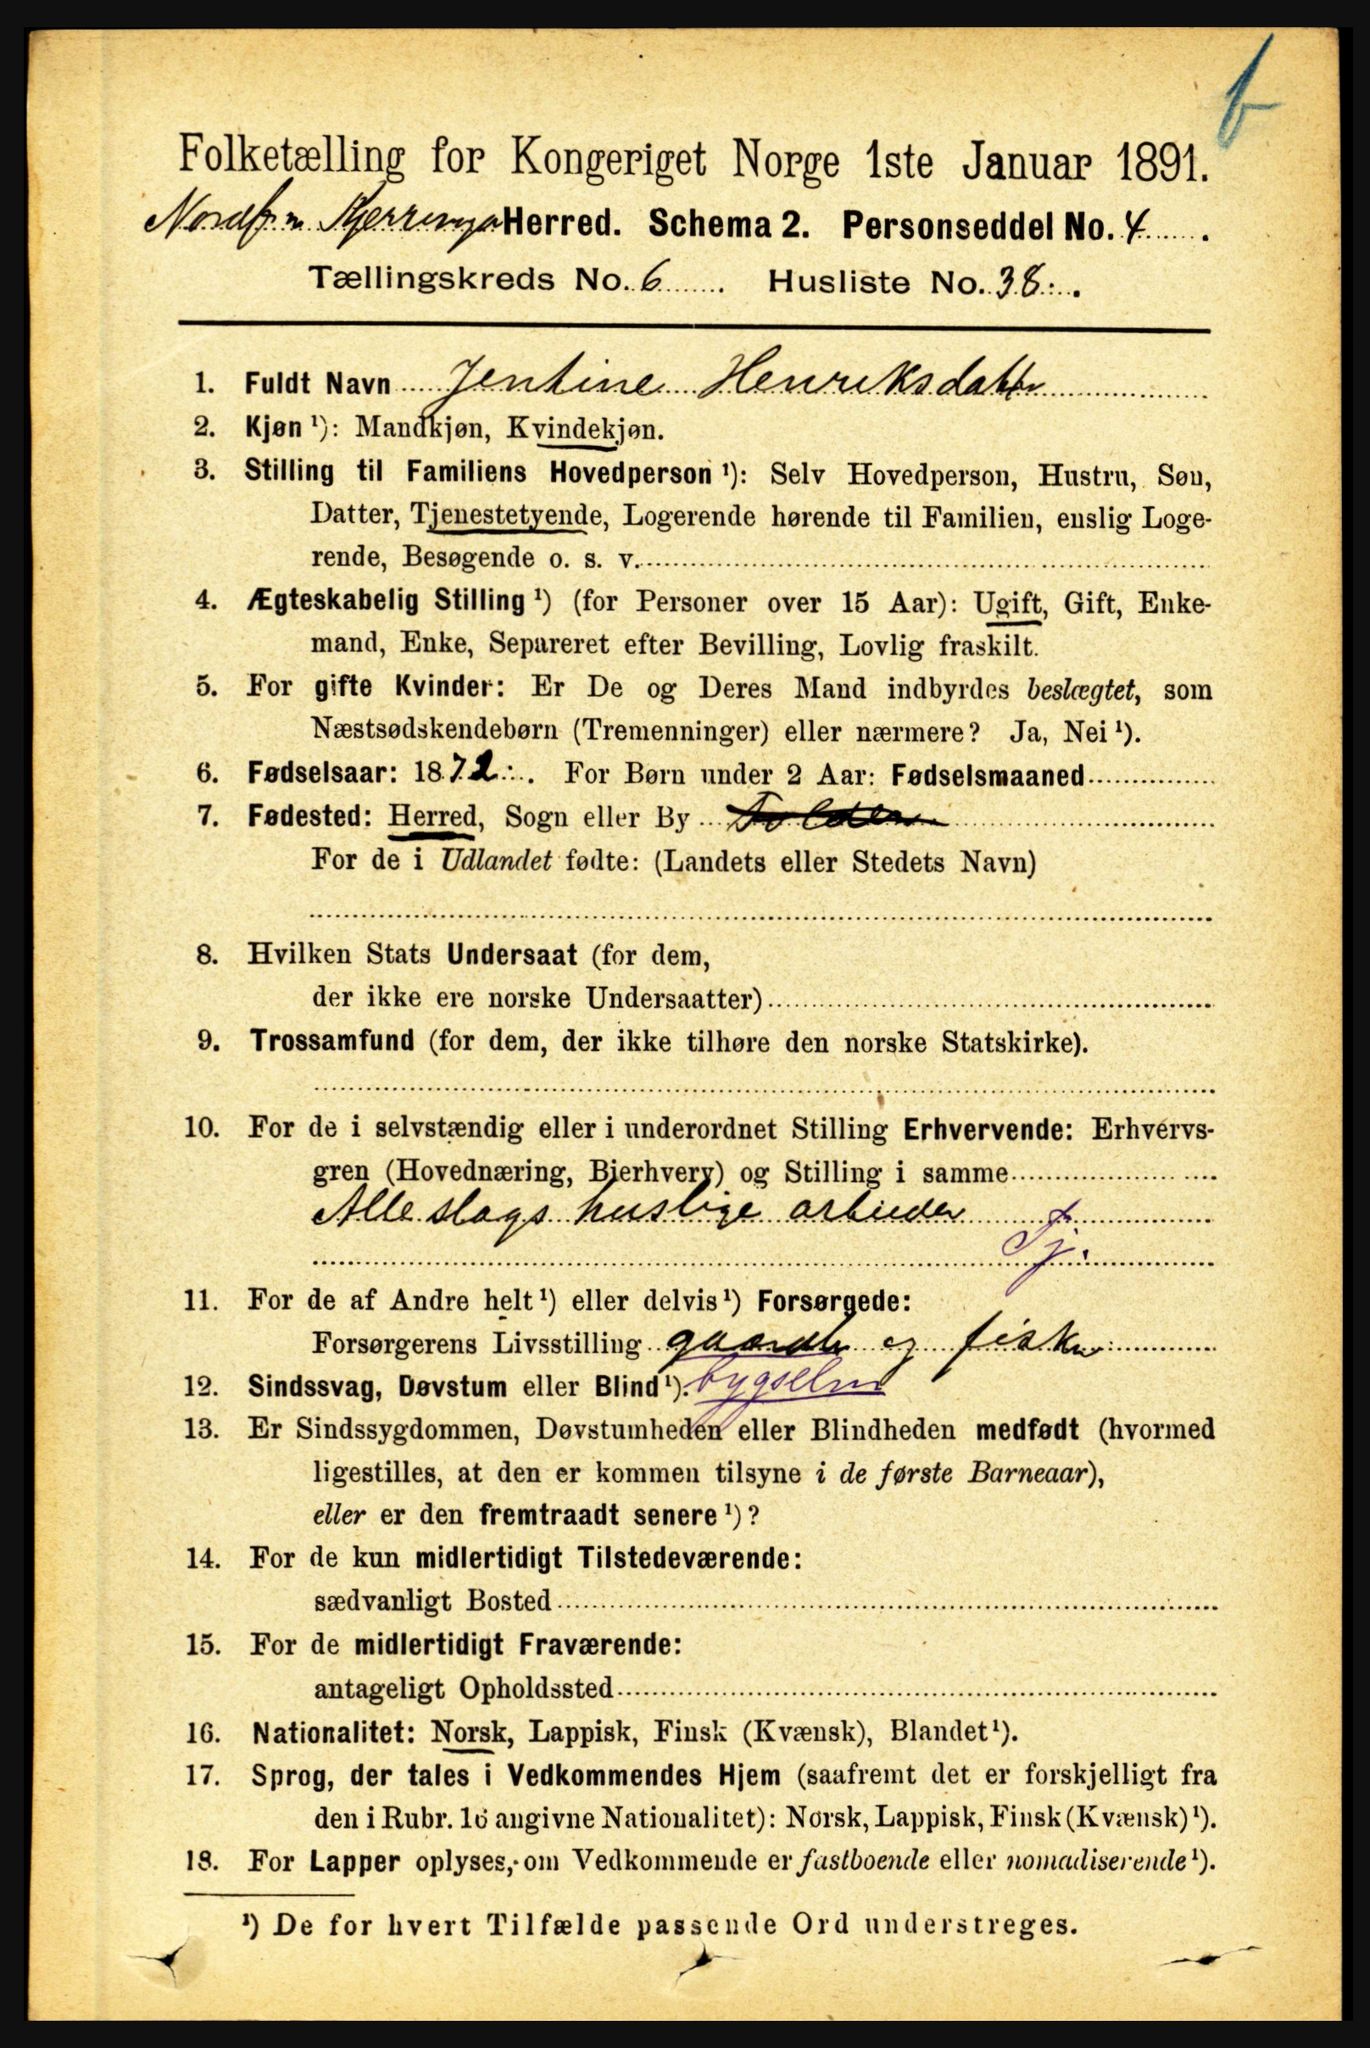 b
Folketælling for Kongeriget Norge 1ste Januar 1891.
Nordf. m Kjerringø Herred. Schema 2. Personseddel No. 4.
Tællingskreds No. 6. Husliste No. 38.
1. Fuldt Navn Jentine Henriksdatter
2. Kjøn ¹): Mandkjøn, Kvindekjøn.
3. Stilling til Familiens Hovedperson ¹): Selv Hovedperson, Hustru, Søn,
Datter, Tjenestetyende, Logerende hørende til Familien, enslig Loge-
rende, Besøgende o. s. v.
4. Ægteskabelig Stilling ¹) (for Personer over 15 Aar): Ugift, Gift, Enke-
mand, Enke, Separeret efter Bevilling, Lovlig fraskilt.
5. For gifte Kvinder: Er De og Deres Mand indbyrdes beslægtet, som
Næstsødskendebørn (Tremenninger) eller nærmere? Ja, Nei ¹).
6. Fødselsaar: 1872. For Børn under 2 Aar: Fødselsmaaned
7. Fødested: Herred, Sogn eller By
For de i Udlandet fødte: (Landets eller Stedets Navn)
8. Hvilken Stats Undersaat (for dem,
der ikke ere norske Undersaatter)
9. Trossamfund (for dem, der ikke tilhøre den norske Statskirke).
10. For de i selvstændig eller i underordnet Stilling Erhvervende: Erhvervs-
gren (Hovednæring, Bierhverv) og Stilling i samme
Alle slags huslige arbeider
Tj.
11. For de af Andre helt ¹) eller delvis ¹) Forsørgede:
Forsørgerens Livsstilling gaardb og fisker
12. Sindssvag, Døvstum eller Blind ¹). bygselm
13. Er Sindssygdommen, Døvstumheden eller Blindheden medfødt (hvormed
ligestilles, at den er kommen tilsyne i de første Barneaar),
eller er den fremtraadt senere ¹)?
14. For de kun midlertidigt Tilstedeværende:
sædvanligt Bosted
15. For de midlertidigt Fraværende:
antageligt Opholdssted
16. Nationalitet: Norsk, Lappisk, Finsk (Kvænsk), Blandet ¹).
17. Sprog, der tales i Vedkommendes Hjem (saafremt det er forskjelligt fra
den i Rubr. 16 angivne Nationalitet): Norsk, Lappisk, Finsk (Kvænsk) ¹).
18. For Lapper oplyses, om Vedkommende er fastboende eller nomadiserende ¹).
¹) De for hvert Tilfælde passende Ord understreges.